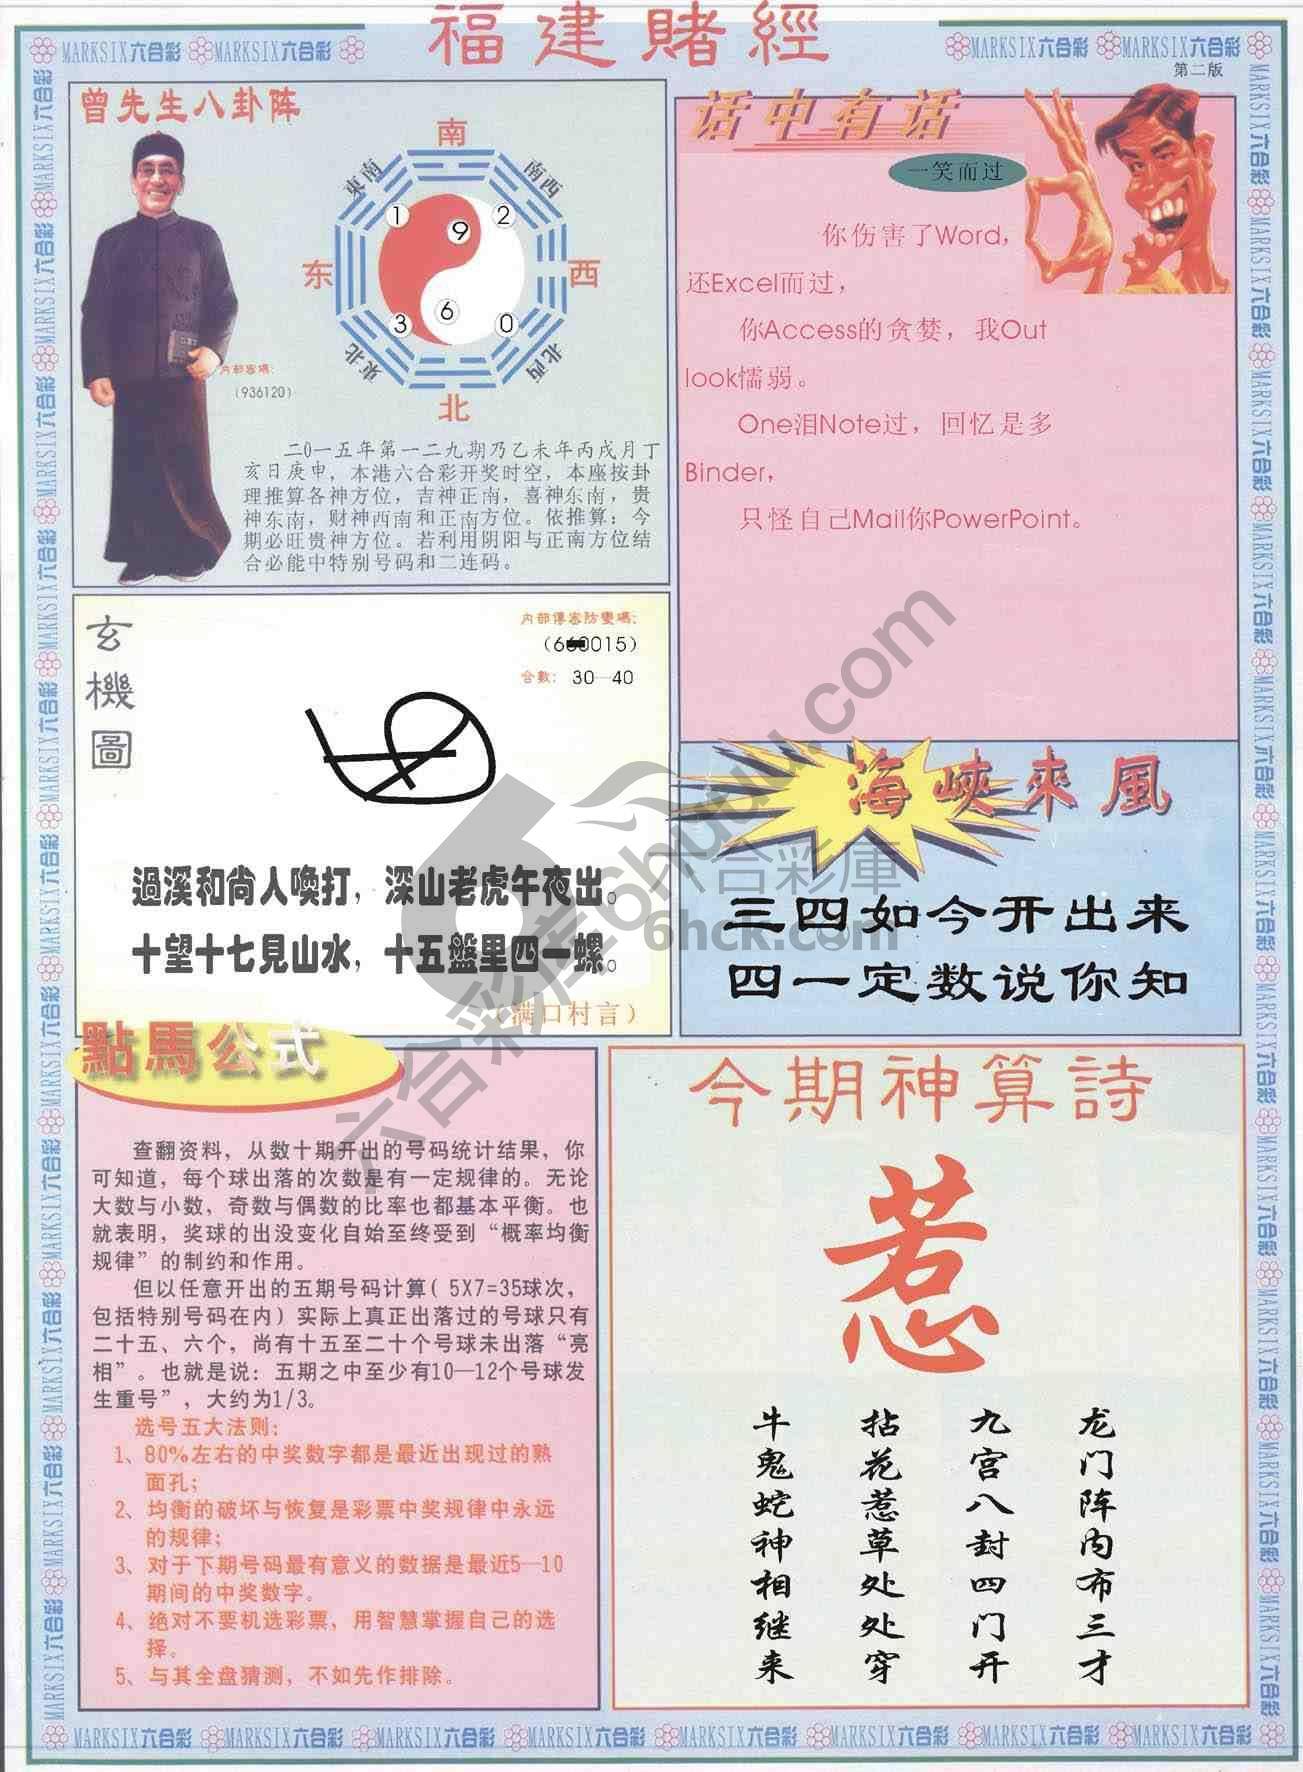 福建賭經
MARKSIX六合彩 MARKSIX六合彩
MARKSIX六合彩 MARKSIX六合彩
第二版
曾先生八卦阵
南
東南
南西
1
9
2
东
西
3
6
0
東北
北西
北
内部密碼:
(936120)
二0一五年第一二九期乃乙未年丙戌月丁
亥日庚申，本港六合彩开奖时空，本座按卦
理推算各神方位，吉神正南，喜神东南，贵
神东南，财神西南和正南方位。依推算：今
期必旺贵神方位。若利用阴阳与正南方位结
合必能中特别号码和二连码。
话中有话
一笑而过
你伤害了Word，
还Excel而过，
你Access的贪婪，我Out
look懦弱。
One泪Note过，回忆是多
Binder，
只怪自己Mail你PowerPoint。
玄機圖
内部傳密防變碼:
合數: 30—40
過溪和尚人喚打，深山老虎午夜出。
十望十七見山水，十五盤里四一螺。
（满口村言）
海峽來風
三四如今开出来
四一定数说你知
點馬公式
查翻资料，从数十期开出的号码统计结果，你
可知道，每个球出落的次数是有一定规律的。无论
大数与小数，奇数与偶数的比率也都基本平衡。也
就表明，奖球的出没变化自始至终受到“概率均衡
规律”的制约和作用。
但以任意开出的五期号码计算( 5X7=35球次，
包括特别号码在内) 实际上真正出落过的号球只有
二十五、六个，尚有十五至二十个号球未出落“亮
相”。也就是说：五期之中至少有10—12个号球发
生重号”，大约为1/3。
选号五大法则：
1、80%左右的中奖数字都是最近出现过的熟
面孔；
2、均衡的破坏与恢复是彩票中奖规律中永远
的规律；
3、对于下期号码最有意义的数据是最近5—10
期间的中奖数字。
4、绝对不要机选彩票，用智慧掌握自己的选
择。
5、与其全盘猜测，不如先作排除。
今期神算詩
惹
龙门阵内布三才
九宫八封四门开
拈花惹草处处穿
牛鬼蛇神相继来
六合彩库6huquu.com
六合彩庫
6hck.com
MARKSIX六合彩 MARKSIX六合彩 MARKSIX六合彩 MARKSIX六合彩 MARKSIX六合彩 MARKSIX六合彩 MARKSIX六合彩 MARKSIX六合彩